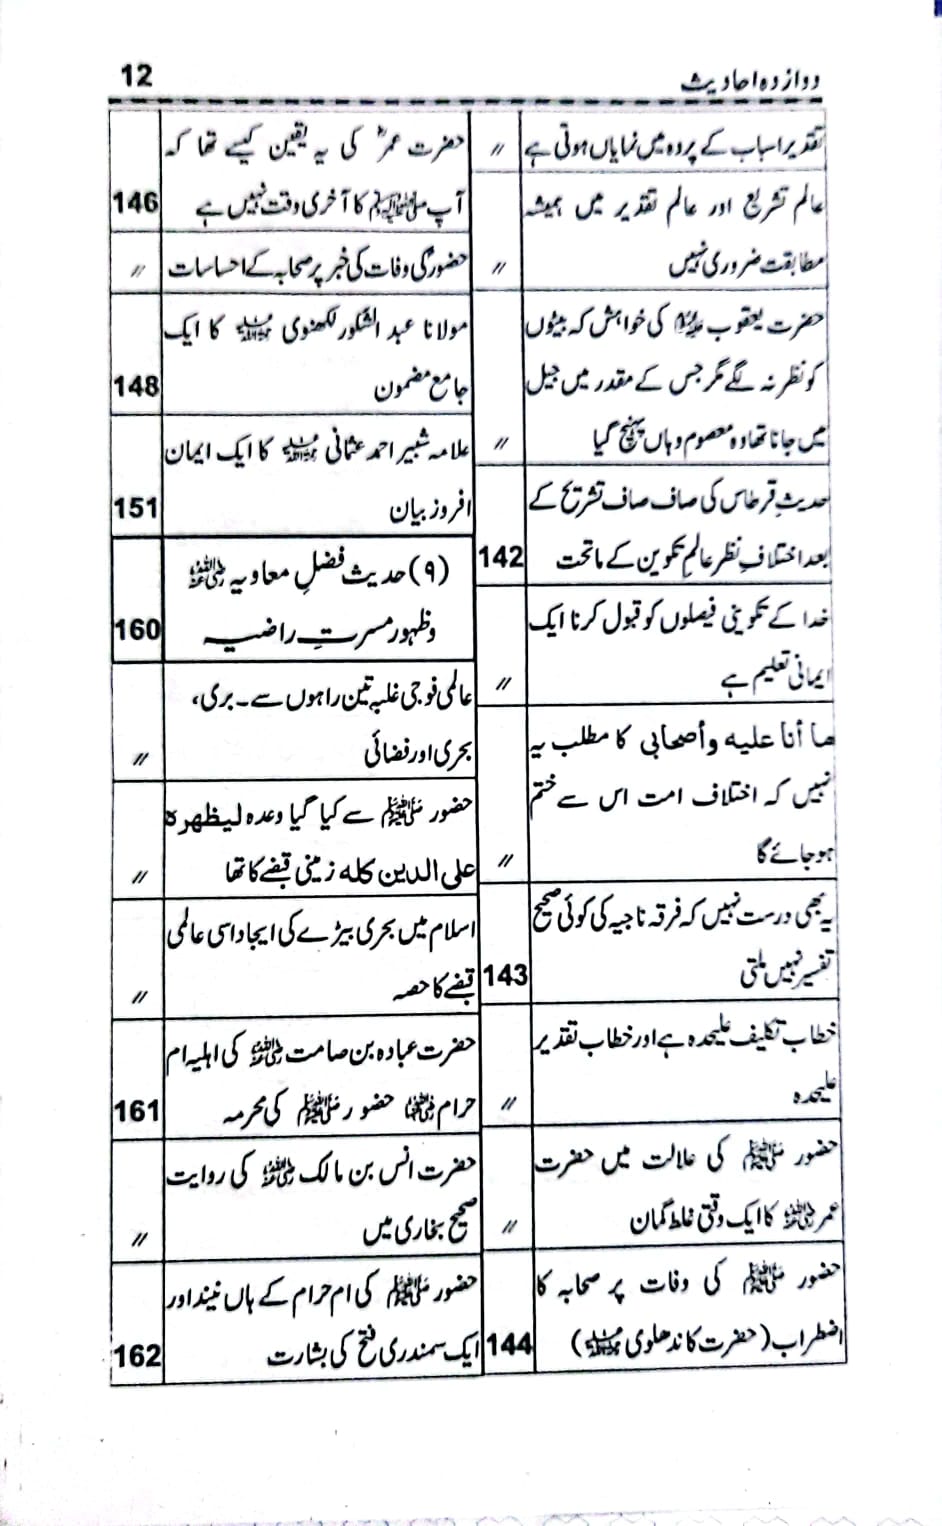 دوازدہ احادیث 12
تقدیر اسباب کے پردہ میں نمایاں ہوتی ہے //
عالم تشریع اور عالم تقدیر میں ہمیشہ
مطابقت ضروری نہیں //
حضرت یعقوب علیہ السلام کی خواہش کہ بیٹوں
کو نظر نہ لگے مگر جس کے مقدر میں جیل
میں جانا تھا وہ معصوم وہاں پہنچ گیا //
حدیثِ قرطاس کی صاف صاف تشریح کے
بعد اختلافِ نظر عالمِ تکوین کے ماتحت 142
خدا کے تکوینی فیصلوں کو قبول کرنا ایک
ایمانی تعلیم ہے //
ما أنا عليه وأصحابي کا مطلب یہ
نہیں کہ اختلاف امت اس سے ختم
ہو جائے گا //
یہ بھی درست نہیں کہ فرقہ ناجیہ کی کوئی صحیح
تفسیر نہیں ملتی 143
خطاب تکلیف علیحدہ ہے اور خطاب تقدیر
علیحدہ //
حضور ﷺ کی علالت میں حضرت
عمر رضی اللہ عنہ کا ایک وقتی غلط گمان //
حضور ﷺ کی وفات پر صحابہ کا
اضطراب (حضرت کاندھلوی رحمۃ اللہ علیہ) 144
حضرت عمرؓ کی یہ یقین کیسے تھا کہ
آپ ﷺ کا آخری وقت نہیں ہے 146
حضورؐ کی وفات کی خبر پر صحابہ کے احساسات //
مولانا عبد الشکور لکھنوی رحمۃ اللہ علیہ کا ایک
جامع مضمون 148
علامہ شبیر احمد عثمانی رحمۃ اللہ علیہ کا ایک ایمان
افروز بیان 151
(۹) حدیث فضلِ معاویہ رضی اللہ عنہ
وظہور مسرتِ راضیہ 160
عالمی فوجی غلبہ تین راہوں سے۔ بری،
بحری اور فضائی //
حضور ﷺ سے کیا گیا وعدہ ليظهره
على الدين كله زمینی قبضے کا تھا //
اسلام میں بحری بیڑے کی ایجاد اسی عالمی
قبضے کا حصہ //
حضرت عبادہ بن صامت رضی اللہ عنہ کی اہلیہ ام
حرام رضی اللہ عنہا حضور ﷺ کی محرمہ 161
حضرت انس بن مالک رضی اللہ عنہ کی روایت
صحیح بخاری میں //
حضور ﷺ کی ام حرام کے ہاں نیند اور
ایک سمندری فتح کی بشارت 162